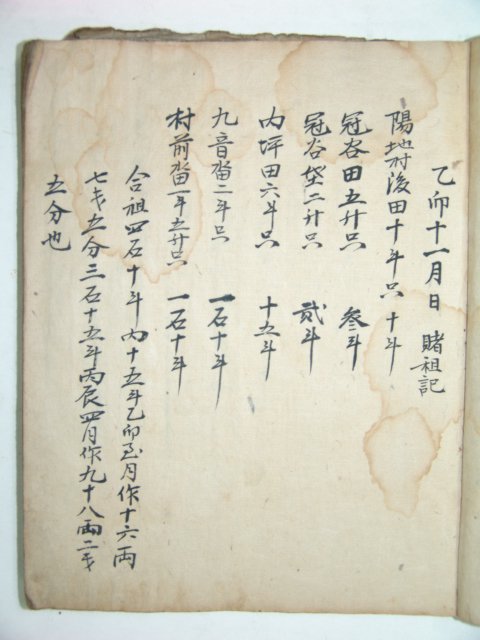 乙卯十一月日 賭租記
陽地村後田十斗只 十斗
冠谷田五升只 叄斗
冠谷垈二升只 貳斗
内坪田六斗只 十五斗
九音畓二斗只 一石十斗
村前畓一斗五升只 一石十斗
合租四石十斗内十五斗乙卯至月作十六両
七戈五分三石十五斗丙辰四月作九十八両二戈
五分也